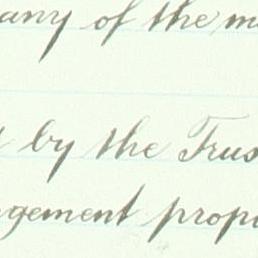 any of the m
by the Trus
gement prop